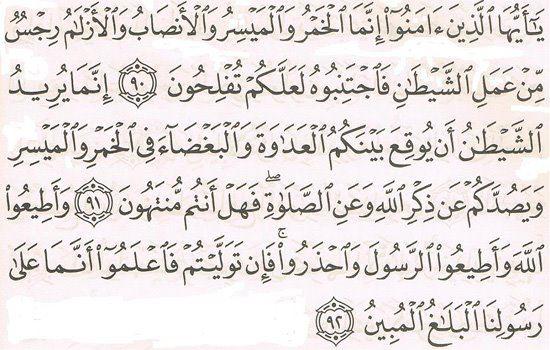 يَٰٓأَيُّهَا ٱلَّذِينَ ءَامَنُوٓا۟ إِنَّمَا ٱلْخَمْرُ وَٱلْمَيْسِرُ وَٱلْأَنصَابُ وَٱلْأَزْلَٰمُ رِجْسٌ
مِّنْ عَمَلِ ٱلشَّيْطَٰنِ فَٱجْتَنِبُوهُ لَعَلَّكُمْ تُفْلِحُونَ ٩٠ إِنَّمَا يُرِيدُ
ٱلشَّيْطَٰنُ أَن يُوقِعَ بَيْنَكُمُ ٱلْعَدَٰوَةَ وَٱلْبَغْضَآءَ فِى ٱلْخَمْرِ وَٱلْمَيْسِرِ
وَيَصُدَّكُمْ عَن ذِكْرِ ٱللَّهِ وَعَنِ ٱلصَّلَوٰةِ ۖ فَهَلْ أَنتُم مُّنتَهُونَ ٩١ وَأَطِيعُوا۟
ٱللَّهَ وَأَطِيعُوا۟ ٱلرَّسُولَ وَٱحْذَرُوا۟ ۚ فَإِن تَوَلَّيْتُمْ فَٱعْلَمُوٓا۟ أَنَّمَا عَلَىٰ
رَسُولِنَا ٱلْبَلَٰغُ ٱلْمُبِينُ ٩٢